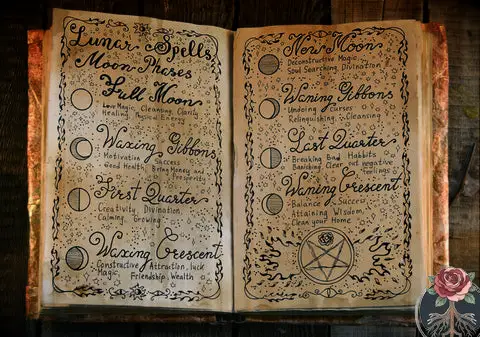 Lunar Spells
Moon Phases
Full Moon
Love Magic, Cleansing, Clarity
Healing, Physical Energy
Waxing Gibbons
Motivation, Success
Good Health, Bring Money and
Prosperity
First Quarter
Creativity, Divination,
Calming, Growing
Waxing Crescent
Constructive, Attraction, luck
Magic, Friendship, Wealth
New Moon
Deconstructive Magic,
Soul Searching, Divination
Waning Gibbons
Undoing Curses
Relinquishing, Cleansing
Last Quarter
Breaking Bad Habbits
Banishing, Clear out negative
feelings
Waning Crescent
Balance, Success
Attaining Wisdom,
Clean your Home